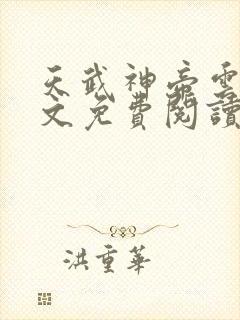 天武神帝雲
文免費閱讀
洪重華